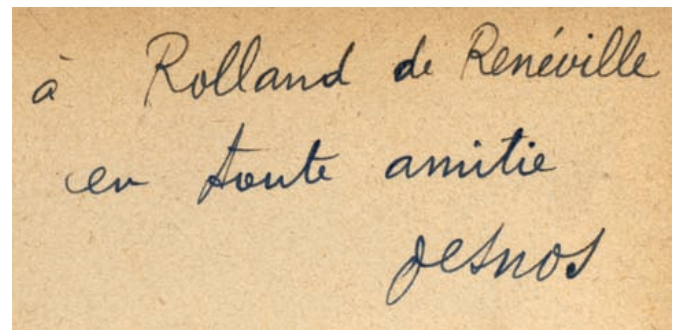 à Rolland de Renéville
en toute amitie
Desnos